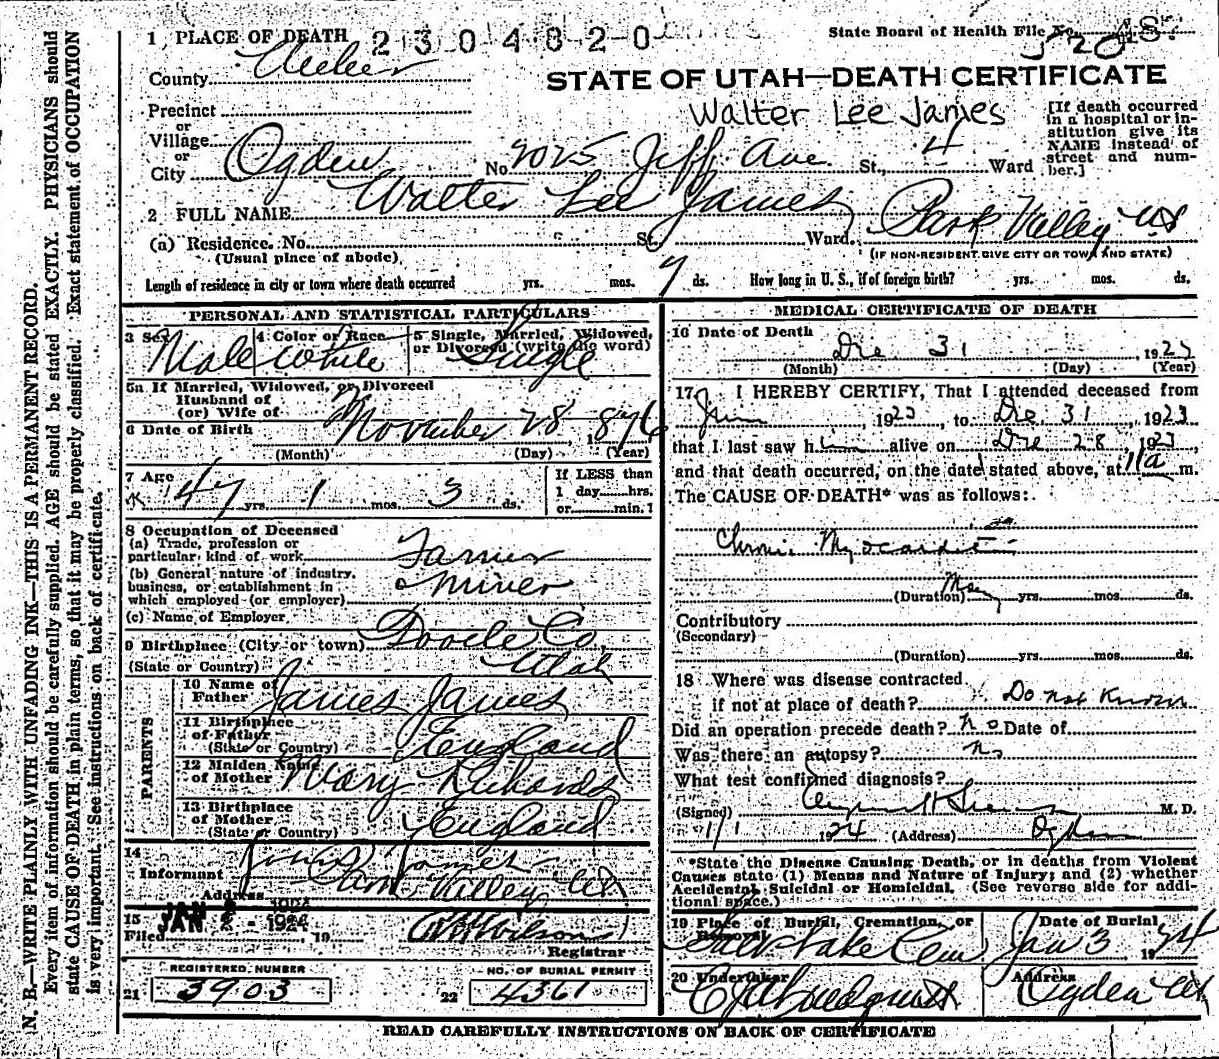 1 PLACE OF DEATH 2304820
State Board of Health File No. 520
County Weber
STATE OF UTAH—DEATH CERTIFICATE
Precinct
or
Village
or
City Ogden No. 2025 Jeff Ave St., 4 Ward
Walter Lee James
[If death occurred
in a hospital or in-
stitution give its
NAME instead of
street and num-
ber.]
2 FULL NAME Walter Lee James
(a) Residence. No. St., Ward. Park Valley Ut
(Usual place of abode) (IF NON-RESIDENT GIVE CITY OR TOWN AND STATE)
Length of residence in city or town where death occurred yrs. mos. 7 ds. How long in U. S., if of foreign birth? yrs. mos. ds.
PERSONAL AND STATISTICAL PARTICULARS
3 Sex Male
4 Color or Race White
5 Single, Married, Widowed,
or Divorced (write the word)
Single
5a If Married, Widowed, or Divorced
Husband of
(or) Wife of
6 Date of Birth November 28, 1876
(Month) (Day) (Year)
7 Age 47 yrs. 1 mos. 3 ds.
If LESS than
1 day hrs.
or min.?
8 Occupation of Deceased
(a) Trade, profession or
particular kind of work Farmer
(b) General nature of industry,
business, or establishment in
which employed (or employer) Miner
(c) Name of Employer
9 Birthplace (City or town) Tooele Co,
(State or Country) Utah
PARENTS
10 Name of
Father James James
11 Birthplace
of Father
(State or Country) England
12 Maiden Name
of Mother Mary Richards
13 Birthplace
of Mother
(State or Country) England
14
Informant James
Address Park Valley Ut
15 JAN 2 - 1924
Filed , 19 Wilson
Registrar
REGISTERED NUMBER
21 3903
NO. OF BURIAL PERMIT
22 4361
MEDICAL CERTIFICATE OF DEATH
16 Date of Death
Dec 31, 1923
(Month) (Day) (Year)
17 I HEREBY CERTIFY, That I attended deceased from
1923, to Dec 31, 1923
that I last saw him alive on Dec 28, 1923,
and that death occurred, on the date stated above, at 11 a m.
The CAUSE OF DEATH* was as follows:
Chronic Myocarditis
(Duration) Many yrs. mos. ds.
Contributory
(Secondary)
(Duration) yrs. mos. ds.
18 Where was disease contracted
if not at place of death? Do not Know
Did an operation precede death? no Date of
Was there an autopsy? no
What test confirmed diagnosis?
(Signed) M. D.
1/1 1924 (Address) Ogden
*State the Disease Causing Death, or in deaths from Violent
Causes state (1) Means and Nature of Injury; and (2) whether
Accidental, Suicidal or Homicidal. (See reverse side for addi-
tional space.)
19 Place of Burial, Cremation, or
Removal Salt Lake Cem
Date of Burial
Jan 3 1924
20 Undertaker
Address
Ogden Ut
READ CAREFULLY INSTRUCTIONS ON BACK OF CERTIFICATE
N. B.—WRITE PLAINLY WITH UNFADING INK—THIS IS A PERMANENT RECORD.
Every item of information should be carefully supplied. AGE should be stated EXACTLY. PHYSICIANS should
state CAUSE OF DEATH in plain terms, so that it may be properly classified. Exact statement of OCCUPATION
is very important. See instructions on back of certificate.